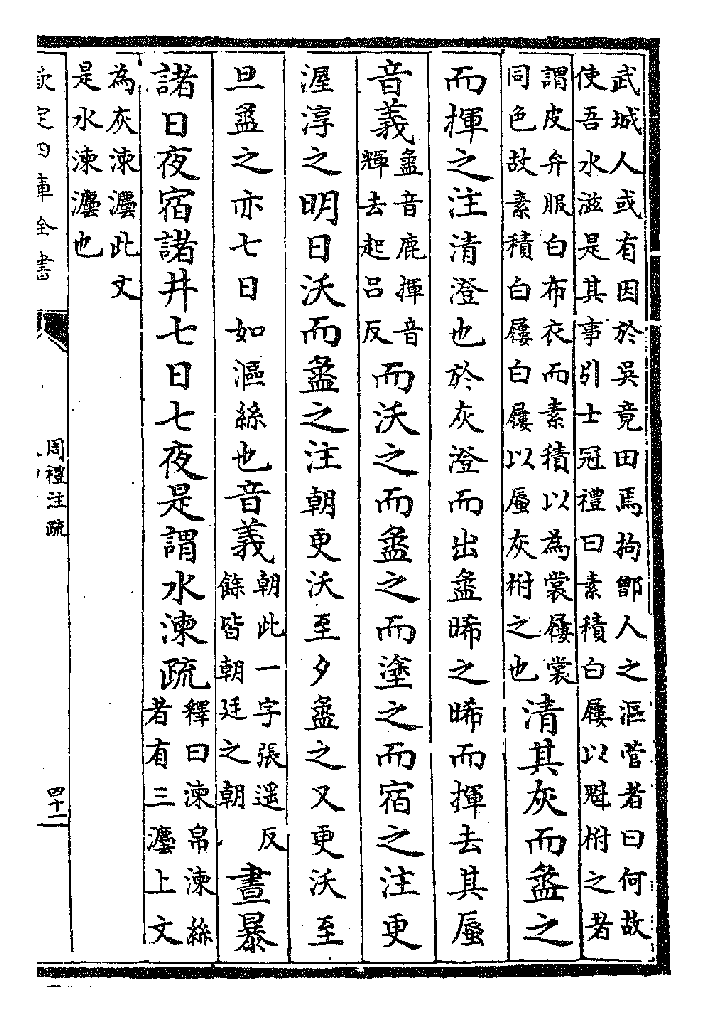 武城人或有因於吳竟田焉拘鄫人之漚菅者曰何故
使吾水滋是其事引士冠禮曰素積白屨以魁柎之者
謂皮弁服白布衣而素積以為裳屨裳
同色故素積白屨白屨以蜃灰柎之也
清其灰而盝之
而揮之注清澄也於灰澄而出盝晞之晞而揮去其蜃
音義
盝音鹿揮音
輝去起呂反
而沃之而盝之而塗之而宿之注更
渥淳之明日沃而盝之注朝更沃至夕盝之又更沃至
旦盝之亦七日如漚絲也音義
朝此一字張遥反
餘皆朝廷之朝
晝暴
諸日夜宿諸井七日七夜是謂水湅疏
釋曰湅帛湅絲
者有三灋上文
為灰湅灋此文
是水湅灋也
欽定四庫全書
周禮注疏
四十二